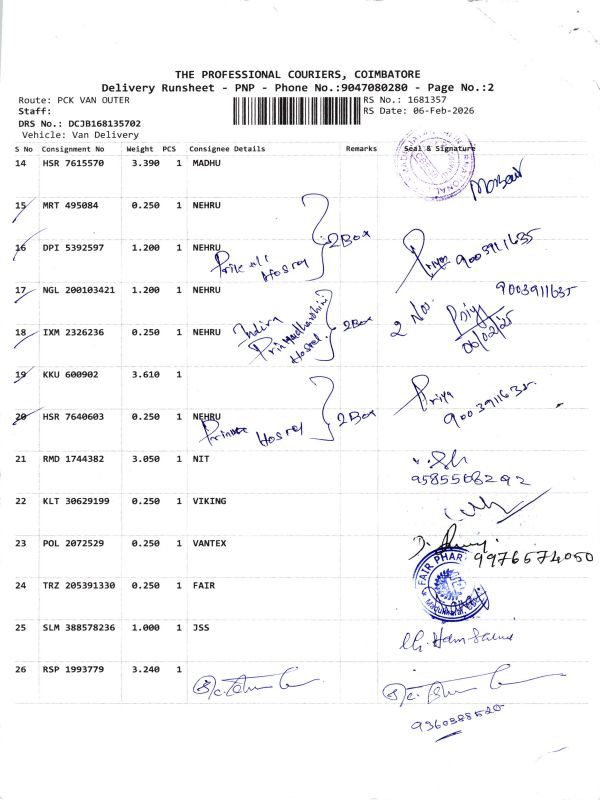 THE PROFESSIONAL COURIERS, COIMBATORE
Delivery Runsheet - PNP - Phone No.:9047080280 - Page No.:2
Route: PCK VAN OUTER RS No.: 1681357
Staff: RS Date: 06-Feb-2026
DRS No.: DCJB168135702
Vehicle: Van Delivery
S No Consignment No Weight PCS Consignee Details Remarks Seal & Signature
14 HSR 7615570 3.390 1 MADHU
15 MRT 495084 0.250 1 NEHRU
2 Box
16 DPI 5392597 1.200 1 NEHRU
Priya 9003911635
17 NGL 200103421 1.200 1 NEHRU
9003911635
18 IXM 2326236 0.250 1 NEHRU Indira
Hostel 2 Box 2 No. Priya
06/02/25
19 KKU 600902 3.610 1
Priya
9003911635
20 HSR 7640603 0.250 1 NEHRU
2 Box
21 RMD 1744382 3.050 1 NIT
9585568292
22 KLT 30629199 0.250 1 VIKING
23 POL 2072529 0.250 1 VANTEX
9976574050
24 TRZ 205391330 0.250 1 FAIR
FAIR PHAR
25 SLM 388578236 1.000 1 JSS
26 RSP 1993779 3.240 1
9360388520